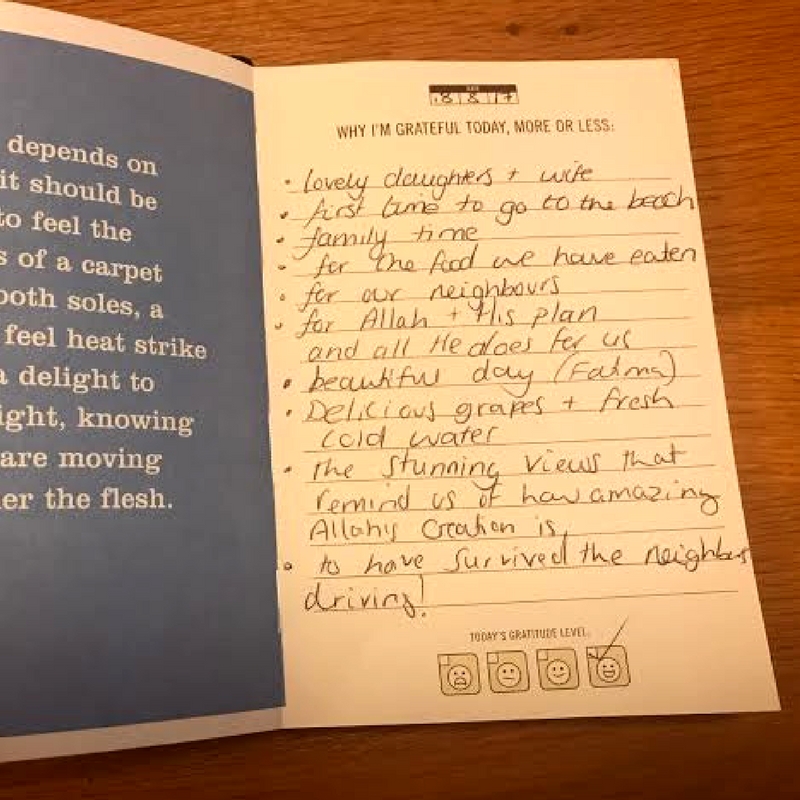 depends on
it should be
to feel the
s of a carpet
both soles, a
feel heat strike
a delight to
ight, knowing
are moving
er the flesh.
DATE
8 8 17
WHY I'M GRATEFUL TODAY, MORE OR LESS:
• lovely daughters + wife
• first time to go to the beach
• family time
• for the food we have eaten
• for our neighbours
• for Allah + His plan
and all He does for us
• beautiful day (Fatma)
• Delicious grapes + fresh
cold water
• the stunning views that
remind us of how amazing
Allahs creation is,
• to have survived the neighbours
driving!
TODAY'S GRATITUDE LEVEL: